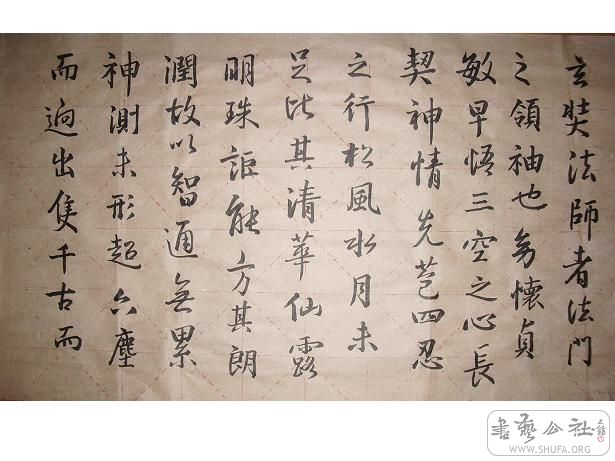 玄奘法師者法門
之領袖也幼懷貞
敏早悟三空之心長
契神情先苞四忍
之行松風水月未
足比其清華仙露
明珠詎能方其朗
潤故以智通無累
神測未形超六塵
而迥出隻千古而
書藝公社
WWW.SHUFA.ORG